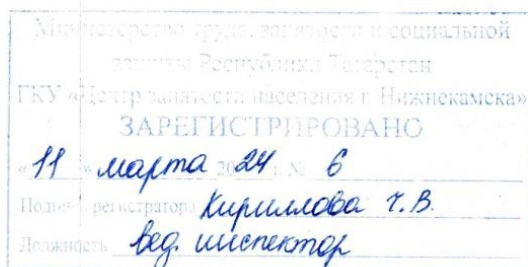 Министерство труда, занятости и социальной
защиты Республики Татарстан
ГКУ «Центр занятости населения г. Нижнекамска»
ЗАРЕГИСТРИРОВАНО
«11» марта 2024 г. № 6
Подпись регистратора Кириллова Ч.В.
Должность вед. инспектор